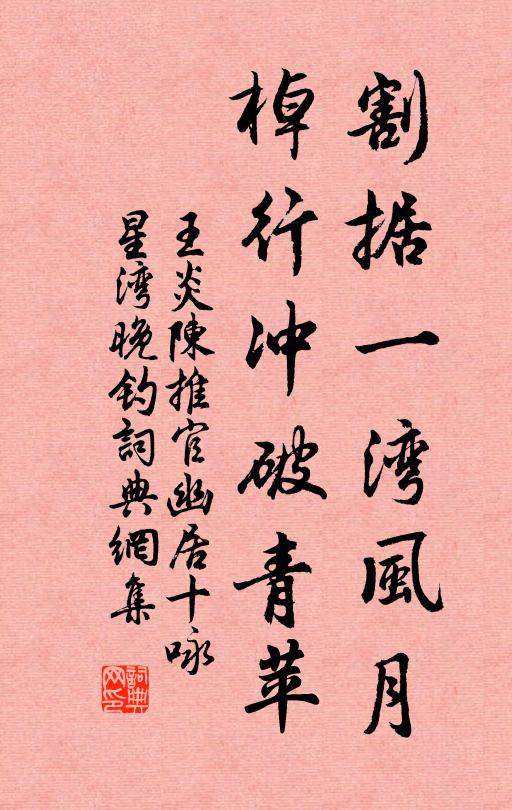 割据一湾風月
棹行冲破青苹
王炎陳推官幽居十咏
星湾晚釣詞典網集
詞典网印